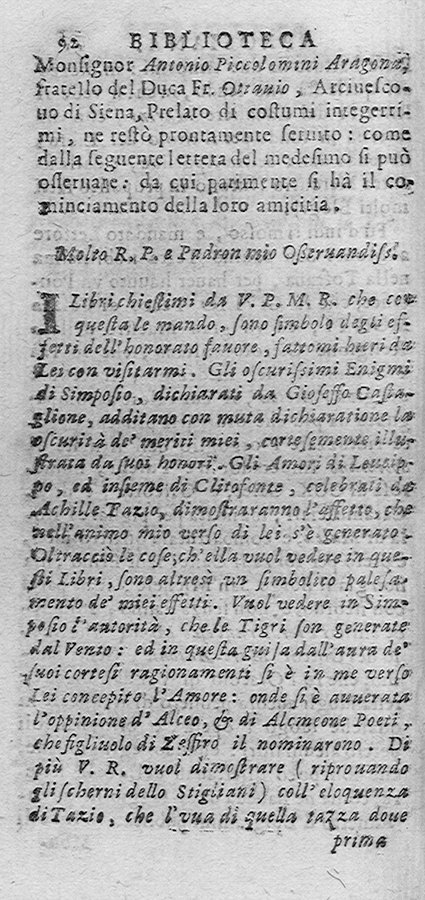 92 BIBLIOTECA
Monsignor Antonio Piccolomini Aragona,
fratello del Duca Fr. Ottauio, Arciuesco-
uo di Siena, Prelato di costumi integerri-
mi, ne restò prontamente seruito: come
dalla seguente lettera del medesimo si può
osseruare: da cui parimente si hà il co-
minciamento della loro amicitia.
Molto R. P. e Padron mio Osseruandiss.
I Libri chiestimi da V. P. M. R. che con
questa le mando, sono simbolo degli ef-
fetti dell'honorato fauore, fattomi hieri da
Lei con visitarmi. Gli oscurissimi Enigmi
di Simposio, dichiarati da Gioseffo Casta-
glione, additano con muta dichiaratione la
oscurità de' meriti miei, cortesemente illu-
strata da suoi honori. Gli Amori di Leucip-
po, ed insieme di Clitofonte, celebrati da
Achille Tazio, dimostraranno l'affetto, che
nell'animo mio verso di lei s'è generato.
Oltracciò le cose, ch'ella vuol vedere in que-
sti Libri, sono altresì un simbolico palesa-
mento de' miei effetti. Vuol vedere in Sim-
posio l'autorità, che le Tigri son generate
dal Vento: ed in questa guisa dall'aura de'
suoi cortesi ragionamenti si è in me verso
Lei concepito l'Amore: onde si è auuerata
l'oppinione d'Alceo, & di Alcmeone Poeti,
che figliuolo di Zeffiro il nominarono. Di
più V. R. vuol dimostrare (riprouando
gli scherni dello Stigliani) coll'eloquenza
di Tazio, che l'vua di quella tazza doue
prima